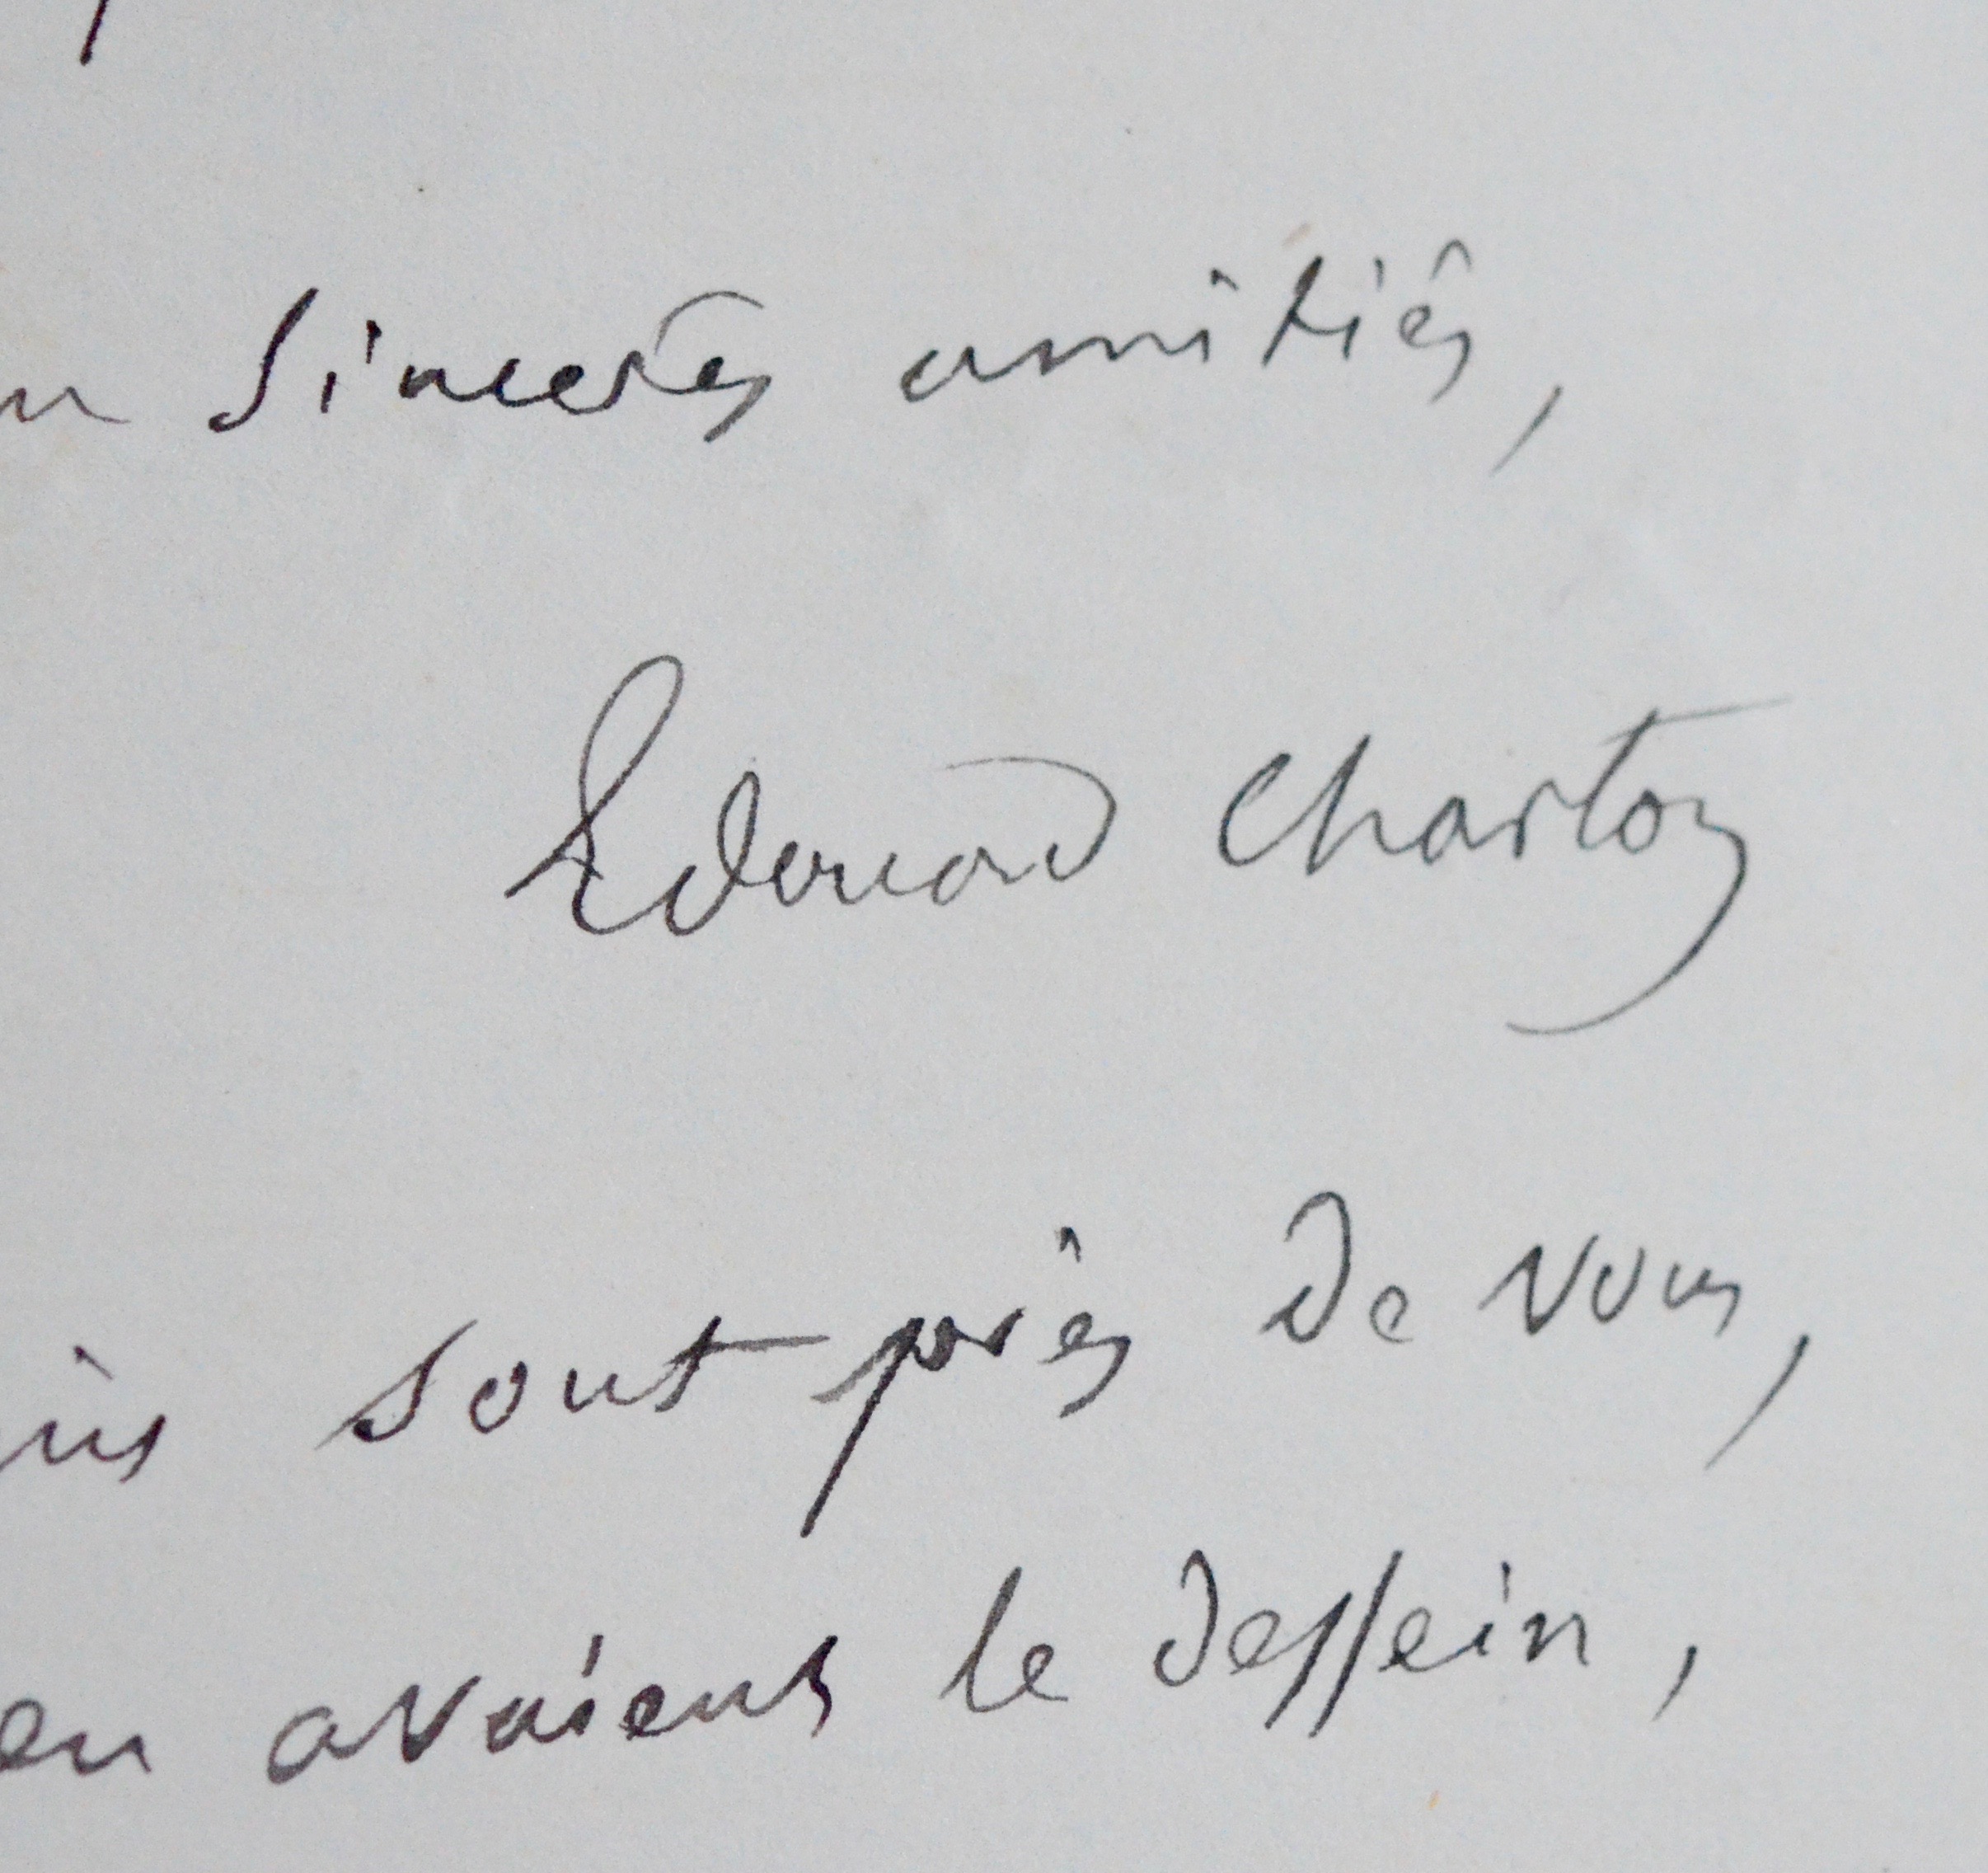 sincères amitiés,
Edouard Charton
sont près de vous,
en avaient le dessein,